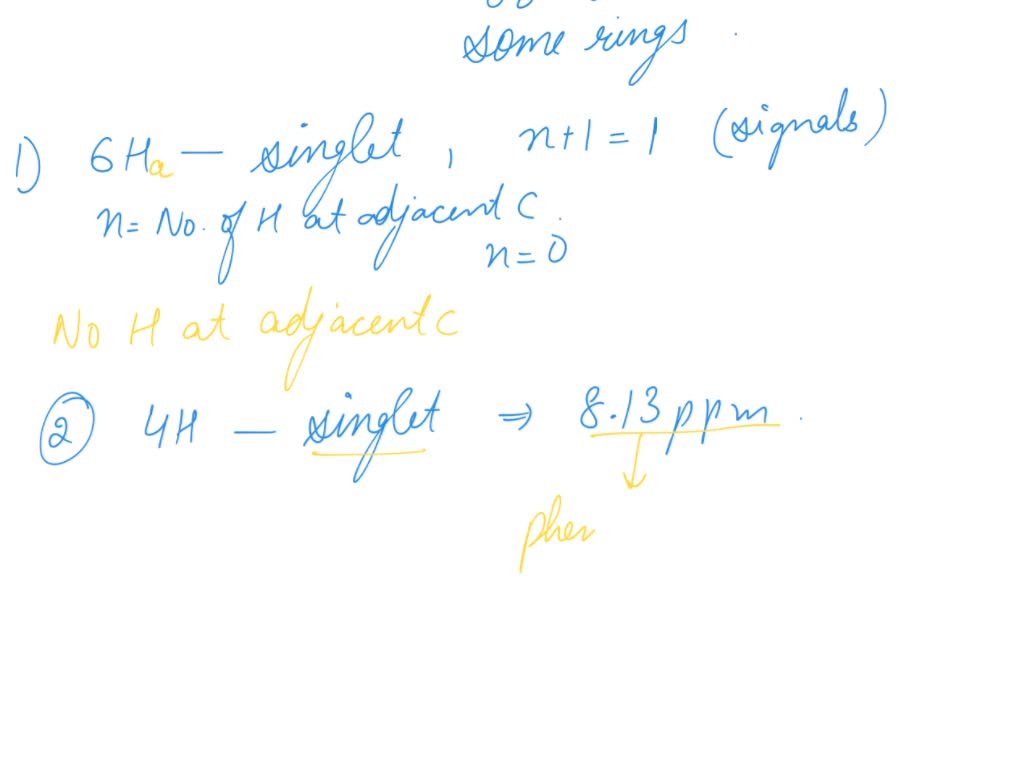 some rings .
1) 6Ha — singlet , n+1 = 1 (signals)
n= No. of H at adjacent C .
n= 0
No H at adjacent C
2 4H — singlet ⇒ 8.13 ppm .
↓
phen